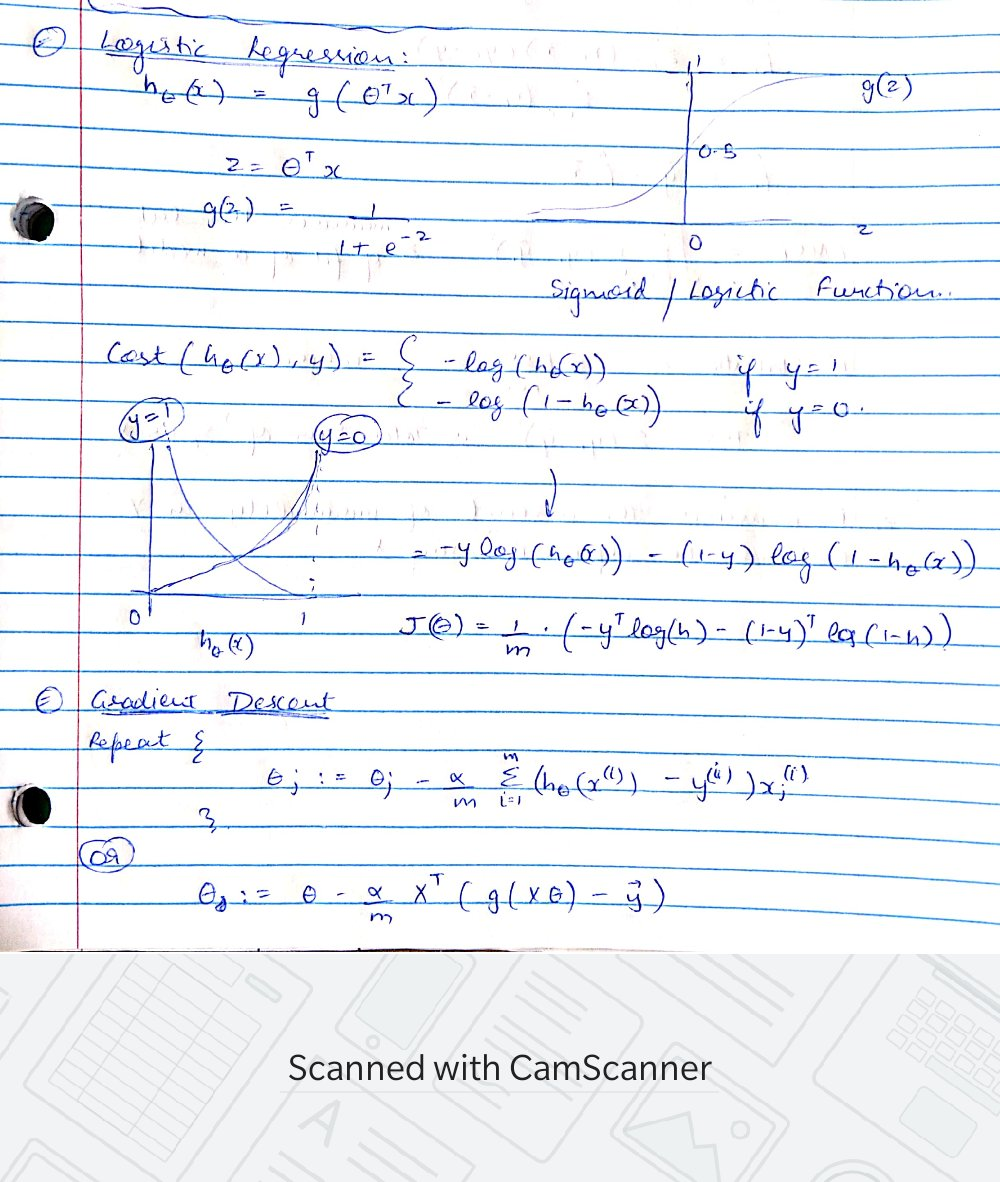 Logistic Regression:
hθ(x) = g(θᵀx)
1
g(z)
0.5
z = θᵀx
g(z) = 1 / 1 + e⁻ᶻ
0
z
Sigmoid / Logistic Function..
Cost (hθ(x), y) = { -log (hθ(x)) if y=1
- log (1-hθ(x)) if y=0.
y=1
y=0
= -y log (hθ(x)) - (1-y) log (1-hθ(x))
0
1
hθ(x)
J(θ) = 1/m . (-yᵀ log(h) - (1-y)ᵀ log (1-h))
Gradient Descent
Repeat {
θj := θj - α/m Σ i=1 m (hθ(x⁽ⁱ⁾) - y⁽ⁱ⁾) xj⁽ⁱ⁾
}
OR
θ := θ - α/m Xᵀ (g(Xθ) - y⃗)
Scanned with CamScanner